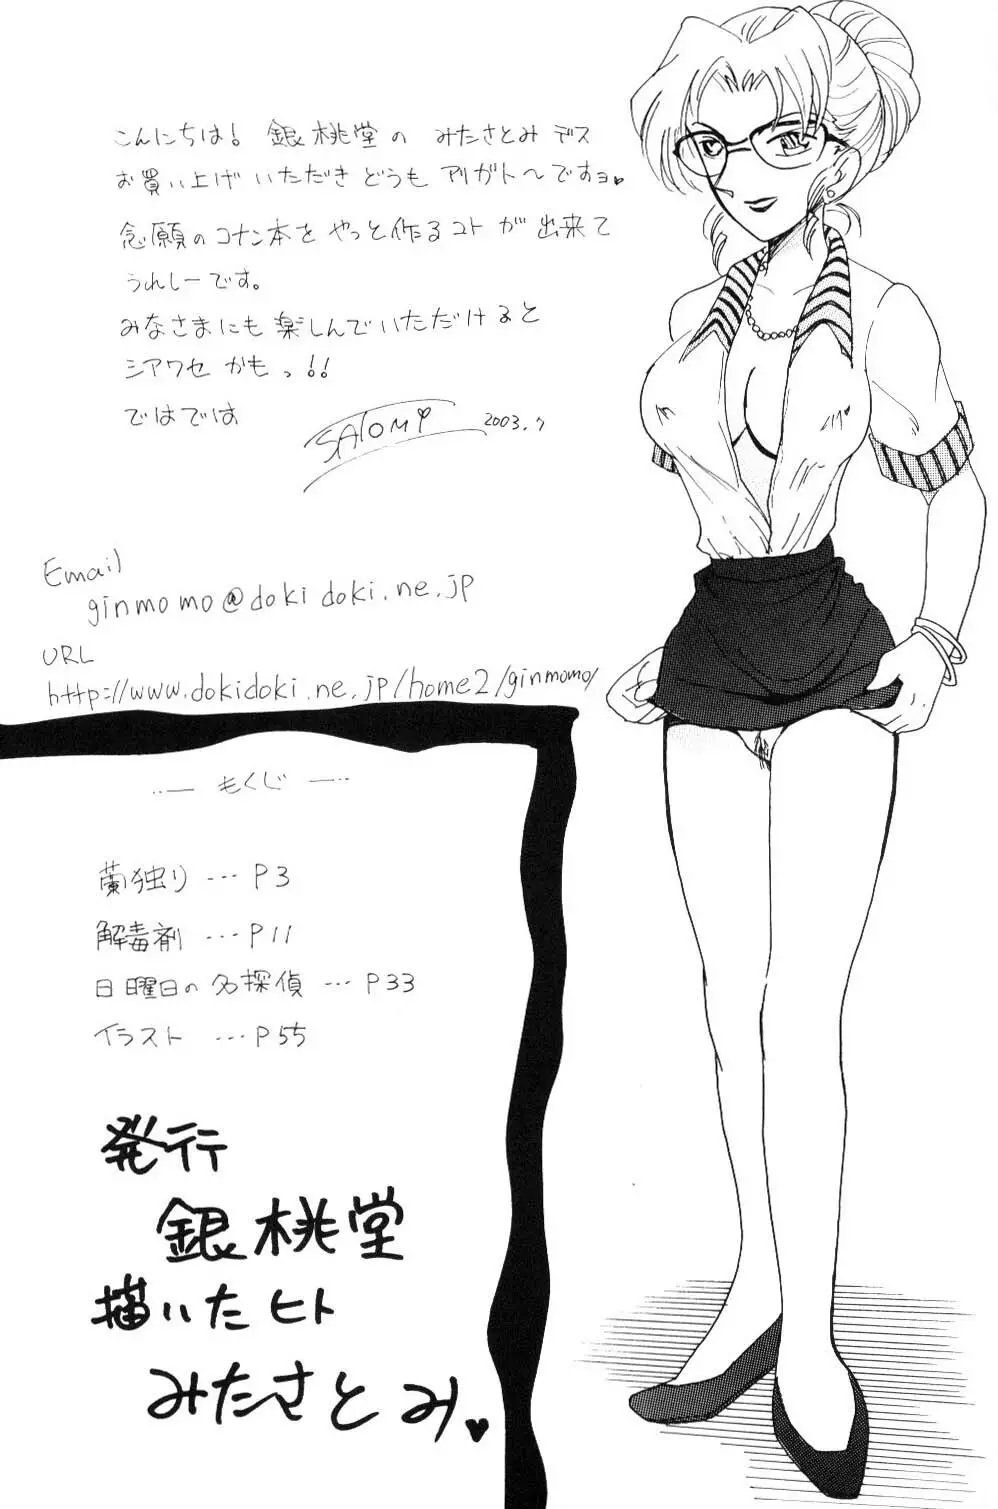 こんにちは! 銀桃堂の みたさとみ デス
お買い上げいただき どうも アリガト〜ですョ♥
念願のコナン本を やっと作るコト が 出来て
うれしーです。
みなさまにも楽しんでいただけると
シアワセ かもっ!!
ではでは
SATOMI 2003.7
Email
ginmomo@dokidoki.ne.jp
URL
http://www.dokidoki.ne.jp/home2/ginmomo/
もくじ
蘭独り … P3
解毒剤 … P11
日曜日の名探偵 … P33
イラスト … P55
発行
銀桃堂
描いたヒト
みたさとみ♥